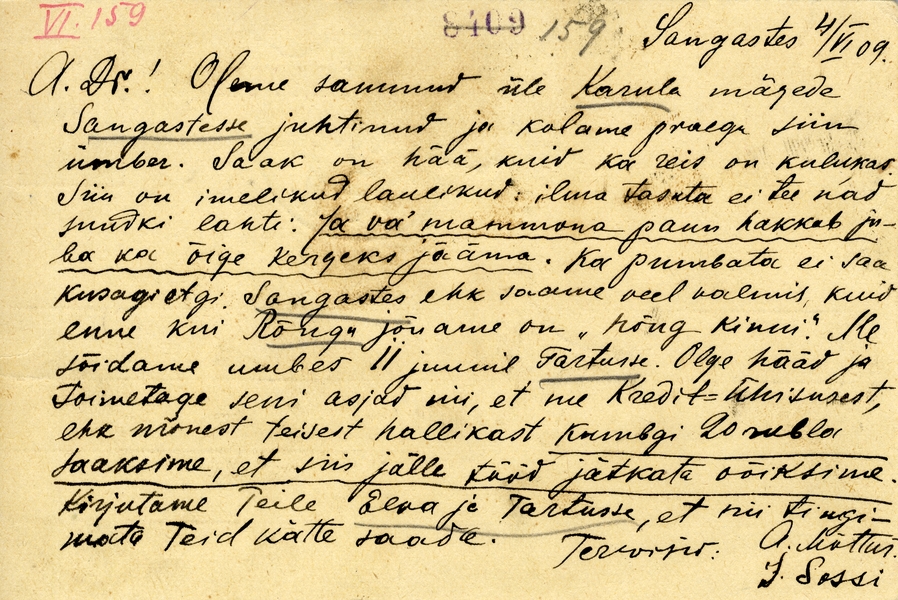 VI. 159
8409
159
Sangastes 4/VI 09.
A. Dr.! Oleme sammud üle Karula mägede
Sangastesse juhtinud ja kolame praegu siin
ümber. Saak on hää, kuid ka reis on kulukas.
Siin on imelikud laulikud: ilma tasuta ei tee nad
suudki lahti. Ja va' mammona paun hakkab ju-
ba ka õige kergeks jääma. Ka pumbata ei saa
kusagiltgi. Sangastes ehk saame veel valmis, kuid
enne kui Rõngu jõuame on „hõng kinni". Me
sõidame umbes 11 juunil Tartusse. Olge hääd ja
toimetage seni asjad nii, et me Kredit=Ühisusest,
ehk mõnest teisest hallikast kumbgi 20 rubla
saaksime, et siis jälle tööd jätkata võiksime.
Kirjutame Teile Elva ja Tartusse, et nii tingi-
mata Teid kätte saada.
Tervisid: A. Mõttus.
J. Sossi